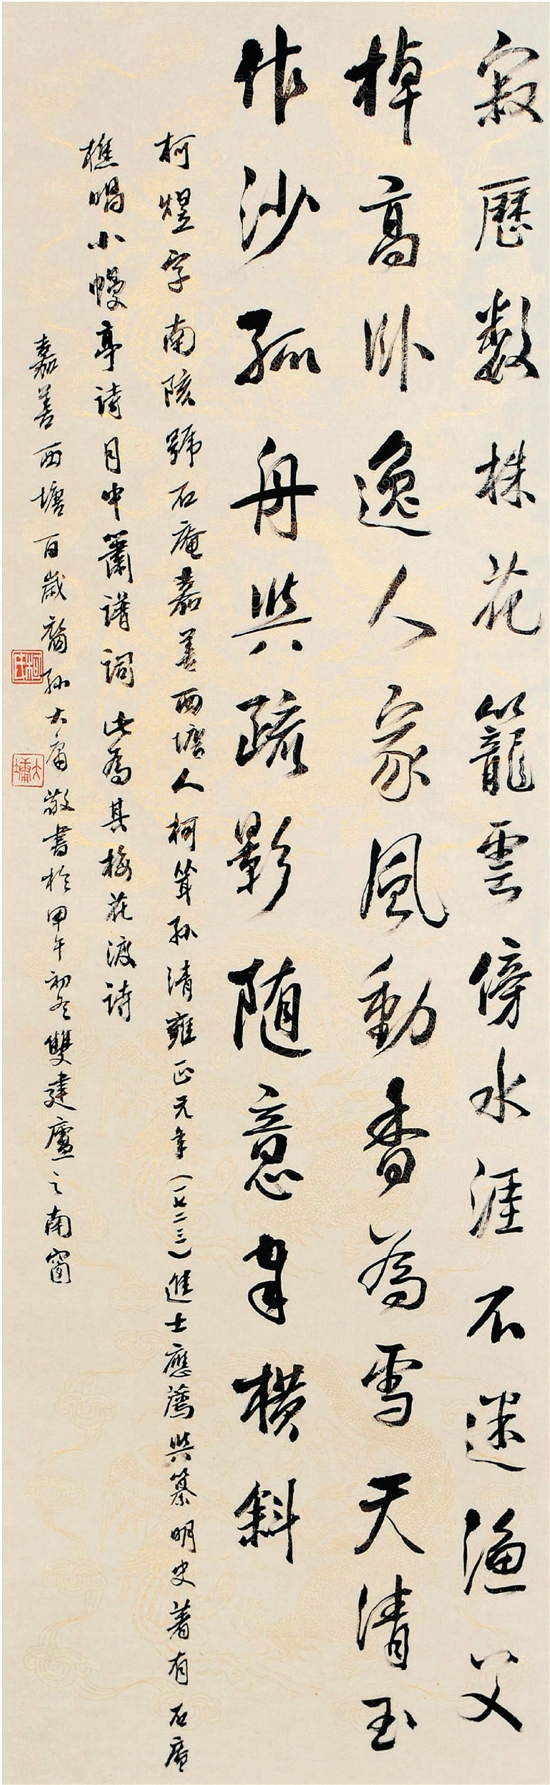 寂歷數株花籠雲傍水涯不迷漁父
棹高卧逸人家風動香為雪天清玉
作沙孤舟與疏影随意自横斜
柯煜字南陔號石庵嘉善西塘人柯耸孙清雍正元年(一七二三)進士應薦與纂明史著有石庵
樵唱小幔亭诗月中簫譜词此為其梅花渡诗
嘉善西塘百歲裔孙大庸敬書於甲午初冬雙建廬之南窗
柯氏
大墉